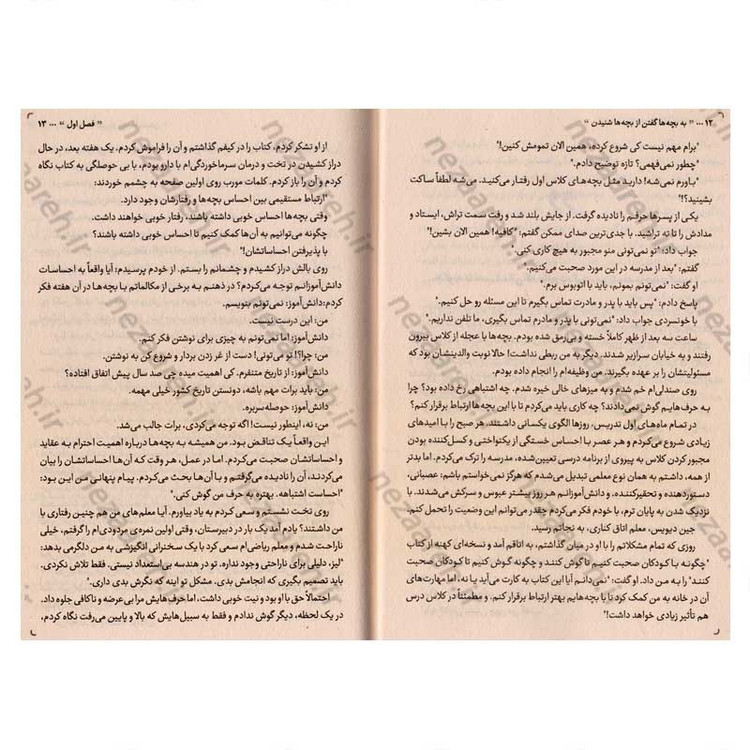 ۱۲ ... " به بچه‌ها گفتن از بچه‌ها شنیدن "
"برام مهم نیست کی شروع کرده، همین الان تمومش کنین!"
"چطور نمی‌فهمی؟ تازه توضیح دادم."
"باورم نمی‌شه! دارید مثل بچه‌های کلاس اول رفتار می‌کنید. می‌شه لطفاً ساکت
بشینید؟!"
یکی از پسرها حرفم را نادیده گرفت. از جایش بلند شد و رفت سمت تراش، ایستاد و
مدادش را تا ته تراشید. با جدی‌ترین صدای ممکن گفتم: "کافیه! همین الان بشین!"
جواب داد: "تو نمی‌تونی منو مجبور به هیچ کاری کنی."
گفتم: "بعد از مدرسه در این مورد صحبت می‌کنیم."
او گفت: "نمی‌تونم بمونم، باید با اتوبوس برم."
پاسخ دادم: "پس باید با پدر و مادرت تماس بگیرم تا این مسئله رو حل کنیم."
با خونسردی جواب داد: "نمی‌تونی با پدر و مادرم تماس بگیری، ما تلفن نداریم."
ساعت سه بعد از ظهر کاملاً خسته و بی‌رمق شده بودم. بچه‌ها با عجله از کلاس بیرون
رفتند و به خیابان سرازیر شدند. دیگر به من ربطی نداشت! حالا نوبت والدینشان بود که
مسئولیتشان را بر عهده بگیرند. من وظیفه‌ام را انجام داده بودم.
روی صندلی‌ام خم شدم و به میزهای خالی خیره شدم. چه اشتباهی رخ داده بود؟ چرا
به حرف‌هایم گوش نمی‌دادند؟ چه کاری باید می‌کردم تا با این بچه‌ها ارتباط برقرار کنم؟
در تمام ماه‌های اول تدریس، روزها الگوی یکسانی داشتند. هر صبح را با امیدهای
زیادی شروع می‌کردم و هر عصر با احساس خستگی از یکنواختی و کسل‌کننده بودن
مجبور کردن کلاس به پیروی از برنامه درسی تعیین‌شده، مدرسه را ترک می‌کردم. اما بدتر
از همه، داشتم به همان نوع معلمی تبدیل می‌شدم که هرگز نمی‌خواستم باشم: عصبانی،
دستوردهنده و تحقیرکننده. و دانش‌آموزانم هر روز بیشتر عبوس و سرکش می‌شدند. با
نزدیک شدن به پایان ترم، با خودم فکر می‌کردم چقدر می‌توانم این وضعیت را تحمل کنم.
جین دیویس، معلم اتاق کناری، به نجاتم رسید.
روزی که تمام مشکلاتم را با او در میان گذاشتم، به اتاقم آمد و نسخه‌ای کهنه از کتاب
"چگونه با کودکان صحبت کنیم تا گوش کنند و چگونه گوش کنیم تا کودکان صحبت
کنند" را به من داد. او گفت: "نمی‌دانم آیا این کتاب به کارت می‌آید یا نه، اما مهارت‌های
آن در خانه به من کمک کرد تا با بچه‌هایم بهتر ارتباط برقرار کنم. و مطمئناً در کلاس درس
هم تأثیر زیادی خواهد داشت!"
" فصل اول " ... ۱۳
از او تشکر کردم، کتاب را در کیفم گذاشتم و آن را فراموش کردم. یک هفته بعد، در حال
دراز کشیدن در تخت و درمان سرماخوردگی‌ام با دارو بودم، با بی حوصلگی به کتاب نگاه
کردم و آن را باز کردم. کلمات مورب روی اولین صفحه به چشمم خوردند:
"ارتباط مستقیمی بین احساس بچه‌ها و رفتارشان وجود دارد.
وقتی بچه‌ها احساس خوبی داشته باشند، رفتار خوبی خواهند داشت.
چگونه می‌توانیم به آن‌ها کمک کنیم تا احساس خوبی داشته باشند؟
با پذیرفتن احساساتشان!"
روی بالش دراز کشیدم و چشمانم را بستم. از خودم پرسیدم: آیا واقعاً به احساسات
دانش‌آموزانم توجه می‌کردم؟ در ذهنم به برخی از مکالماتم با بچه‌ها در آن هفته فکر
کردم: دانش‌آموز: نمی‌تونم بنویسم.
من: این درست نیست.
دانش‌آموز: اما نمی‌تونم به چیزی برای نوشتن فکر کنم.
من: چرا؟! تو می‌تونی! دست از غر زدن بردار و شروع کن به نوشتن.
دانش‌آموز: از تاریخ متنفرم. کی اهمیت میده چی صد سال پیش اتفاق افتاده؟
من: باید برات مهم باشه، دونستن تاریخ کشور خیلی مهمه.
دانش‌آموز: حوصله‌سربره.
من: نه، اینطور نیست! اگه توجه می‌کردی، برات جالب می‌شد.
این واقعاً یک تناقض بود. من همیشه به بچه‌ها درباره اهمیت احترام به عقاید
و احساسات صحبت می‌کردم. اما در عمل، هر وقت که آن‌ها احساساتشان را بیان
می‌کردند، آن را نادیده می‌گرفتم و با آن‌ها بحث می‌کردم. پیام پنهانی من این بود:
"احساست اشتباهه. بهتره به حرف من گوش کنی."
روی تخت نشستم و سعی کردم به یاد بیاورم. آیا معلم‌های من هم چنین رفتاری با
من داشتند؟ یادم آمد یک بار در دبیرستان، وقتی اولین نمره‌ی مردودی‌ام را گرفتم، خیلی
ناراحت شدم و معلم ریاضی‌ام سعی کرد با یک سخنرانی انگیزشی به من دلگرمی بدهد:
"لیز، دلیلی برای ناراحتی وجود نداره. تو در هندسه بی‌استعداد نیستی. فقط تلاش نکردی.
باید تصمیم بگیری که انجامش بدی. مشکل تو اینه که نگرش بدی داری."
احتمالاً حق با او بود و نیت خوبی داشت، اما حرف‌هایش مرا بی‌عرضه و ناکافی جلوه داد.
در یک لحظه، دیگر گوش ندادم و فقط به سبیل‌هایش که بالا و پایین می‌رفت نگاه کردم،
nezaareh.ir